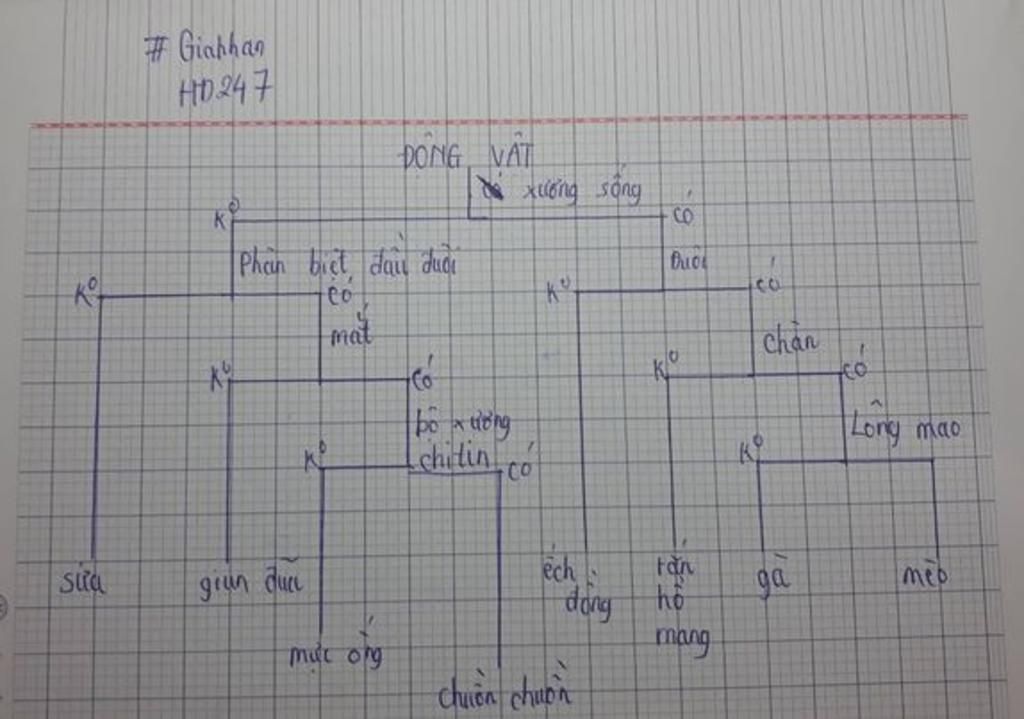 # Giahhan
HD247
ĐỘNG VẬT
xương sống
K⁰ có
Phân biệt đầu đuôi
Đuôi
K⁰ có
K⁰ có
mắt
chân
K⁰ có
K⁰ có
bộ xương
chitin
Lông mao
K⁰ có
K⁰
sứa
giun đũa
mực ống
chuồn chuồn
ếch
đồng
rắn
hổ
mang
gà
mèo